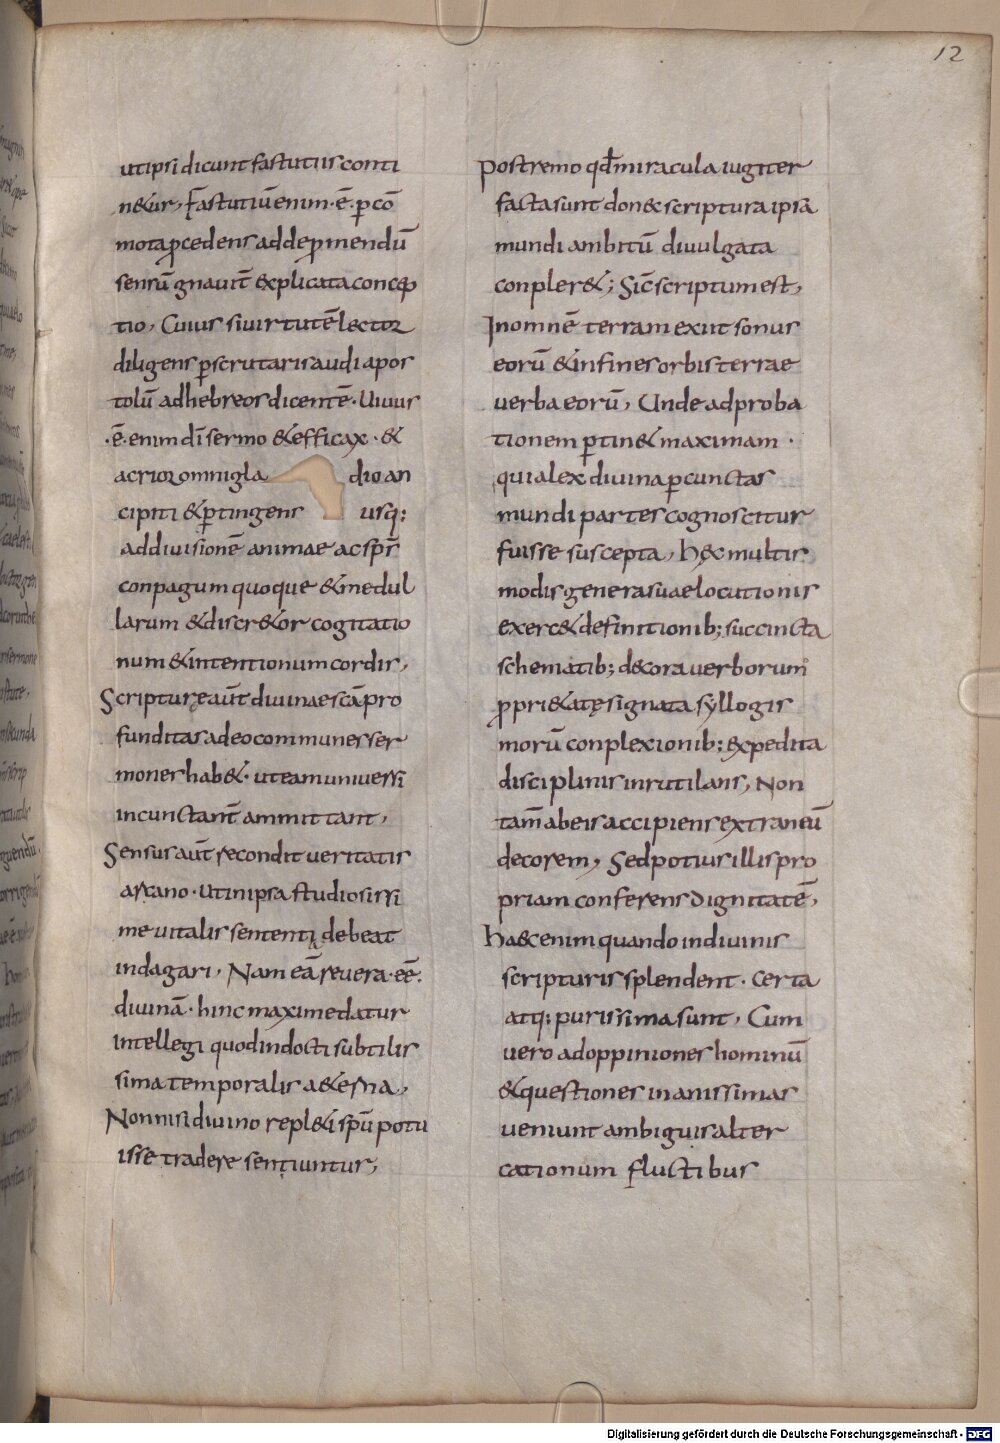 12
utipsi dicunt fastutiis conti
n&ur, Fastutiū enim·ē·p cō
mota pcedens ad depmendū
sensū gnavit̄ explicata concep
tio, Cuius si virtutē lector
diligens pscrutaris audi apos
tolū ad hebreos dicentē· Uivus
·ē·enim dī sermo & efficax·&
acrior omni gla dio an
cipiti & ptingens usq;
ad divisionē animae ac spr̄
conpagum quoque & medul
larum & discr&or cogitatio
num & intentionum cordis,
Scripturę aūt divinae scā pro
funditas adeo communes ser
mones hab&· ut eam universi
incunctant̄ ammittant,
Sensus aūt recondit veritatis
arcano· ut in ipsa studiosissi
me vitalis sententi debeat
indagari, Nam eā revera·eē·
divinā· hinc maxime datur
intellegi quod indocti subtilis
sima temporalis a&erna,
Non nisi divino repl&i spū potu
isse tradere sentiuntur,
Postremo qd̄ miracula iugiter
facta sunt donec scriptura ipsa
mundi ambitū divulgata
conpler&; Sic̄ scriptum est,
In omnē terram exiit sonus
eorū & in fines orbis terrae
verba eorū, Unde ad proba
tionem ptin& maximam·
quia lex divina p cunctas
mundi partes cognoscitur
fuisse suscepta, hęc multis
modis genera suae locutionis
exerc& definitionib; succincta
schematib; decora verborum
ppri&atę signata syllogis
morū conplexionib; expedita
disciplinis inrutilans, Non
tam̄ ab eis accipiens extraneū
decorem, Sed potius illis pro
priam conferens dignitatē,
haec enim quando in divinis
scripturis splendent· certa
atq; purissima sunt, Cum
vero ad oppiniones hominū
& questiones inanissimas
veniunt ambiguis alter
cationum fluctibus
Digitalisierung gefördert durch die Deutsche Forschungsgemeinschaft - DFG